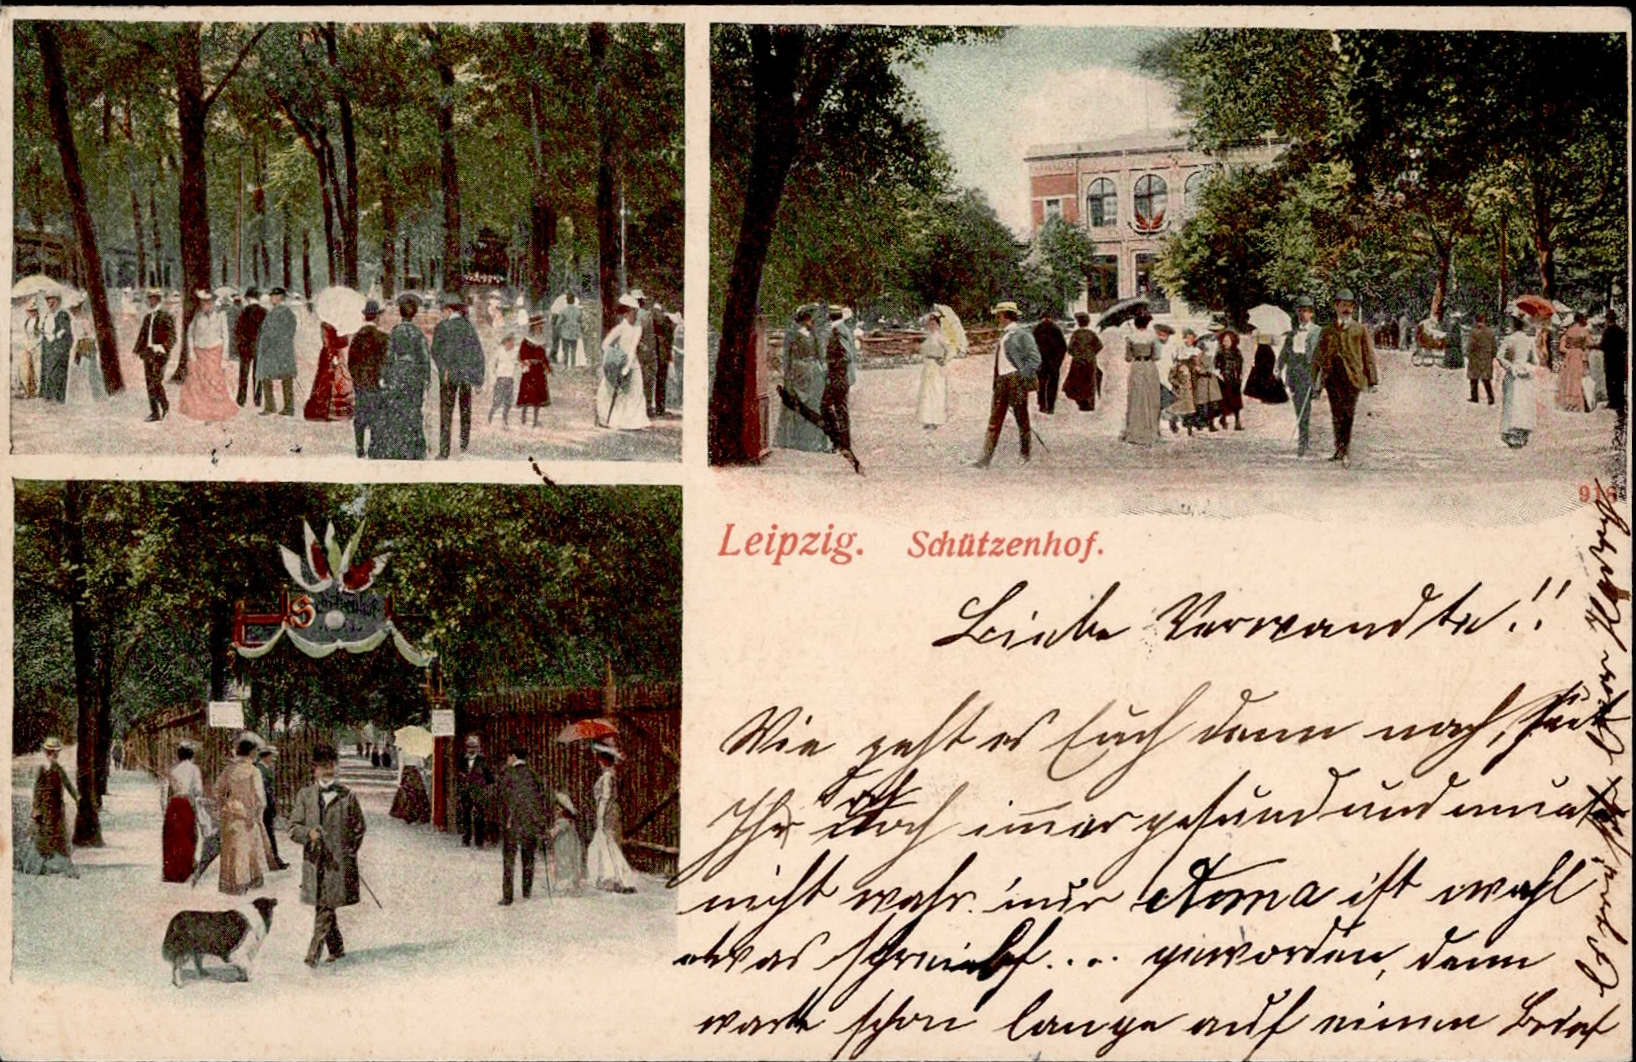 916
Leipzig. Schützenhof.
Liebe Verwandte!!
Wie geht es Euch denn noch, seid
Ihr doch immer gesund und munter
nicht wahr. nur Anna ist wohl
etwas schreibf.... geworden, denn
warte schon lange auf einen Brief
Es grüßt